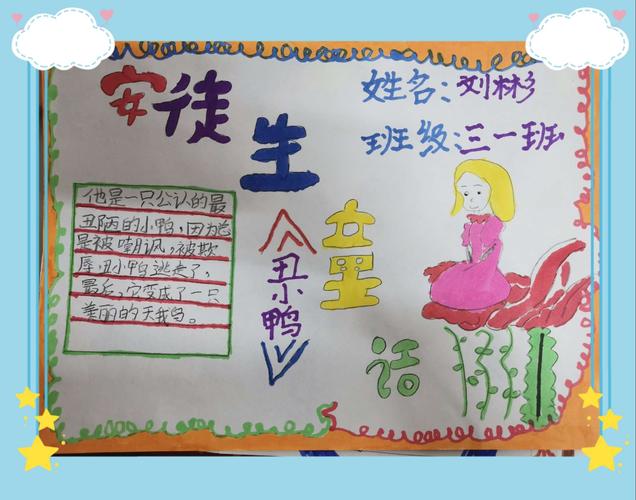 安徒生
童话
姓名:刘彬
班级:三一班
他是一只公认的最
丑陋的小鸭,因为总
是被嘲讽,被欺
辱,丑小鸭逃走了,
最后,它变成了一只
美丽的天鹅。
《丑小鸭》